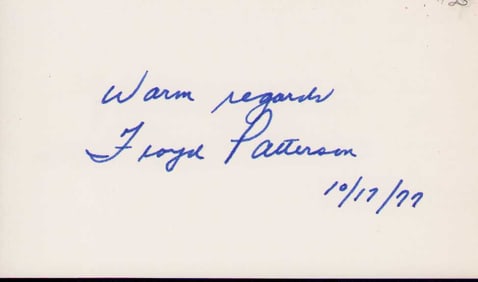 Warm regards
Floyd Patterson
10/17/77